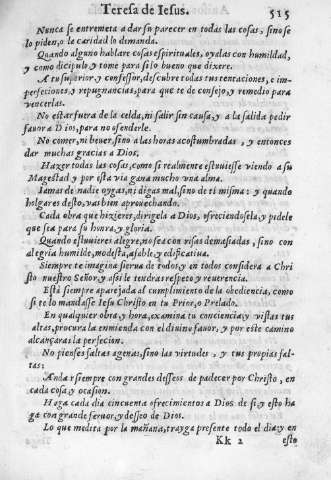 Teresa de Iesus. 515
Nunca se entremeta a dar su parecer en todas las cosas, sino se
lo piden, o le caridad lo demanda.
Quando alguno hablare cosas espirituales, oyalas con humildad,
y como dicipulo, y tome para si lo bueno que dixere.
A tu superior, y confessor, descubre todas tus tentaciones, e im-
perfeciones, y repugnancias, para que te de consejo, y remedio para
vencerlas.
No estar fuera de la celda, ni salir sin causa, y a la salida pedir
fauor a Dios, para no ofenderle.
No comer, ni beuer, sino a las horas acostumbradas, y entonces
dar muchas gracias a Dios.
Hazer todas las cosas, como si realmente estuuiesse viendo a su
Magestad y por esta via gana mucho vna alma.
Iamas de nadie oygas, ni digas mal, sino de ti misma: y quando
holgares desto, vas bien aprouechando.
Cada obra que hizieres, dirigela a Dios, ofreciendosela, y pidele
que sea para su honra, y gloria.
Quando estuuieres alegre, no sea con risas demasiadas, sino con
alegria humilde, modesta, afable, y edificatiua.
Siempre te imagina sierua de todos, y en todos considera a Chri
sto nuestro Señor, y assi le tendras respeto y reuerencia.
Està siempre aparejada al cumplimiento de la obediencia, como
si te lo mandasse Iesu Christo en tu Prior, o Prelado.
En qualquier obra, y hora, examina tu conciencia: y vistas tus
faltas, procura la enmienda con el diuino fauor, y por este camino
alcançaràs la perfecion.
No pienses faltas agenas, sino las virtudes, y tus propias fal-
tas:
Andar siempre con grandes desseos de padecer por Christo, en
cada cosa, y ocasion.
Haga cada dia cincuenta ofrecimientos a Dios de si, y esto ha
ga con grande feruor, y desseo de Dios.
Lo que medita por la mañana, trayga presente todo el dia: y en
Kk 2 esto